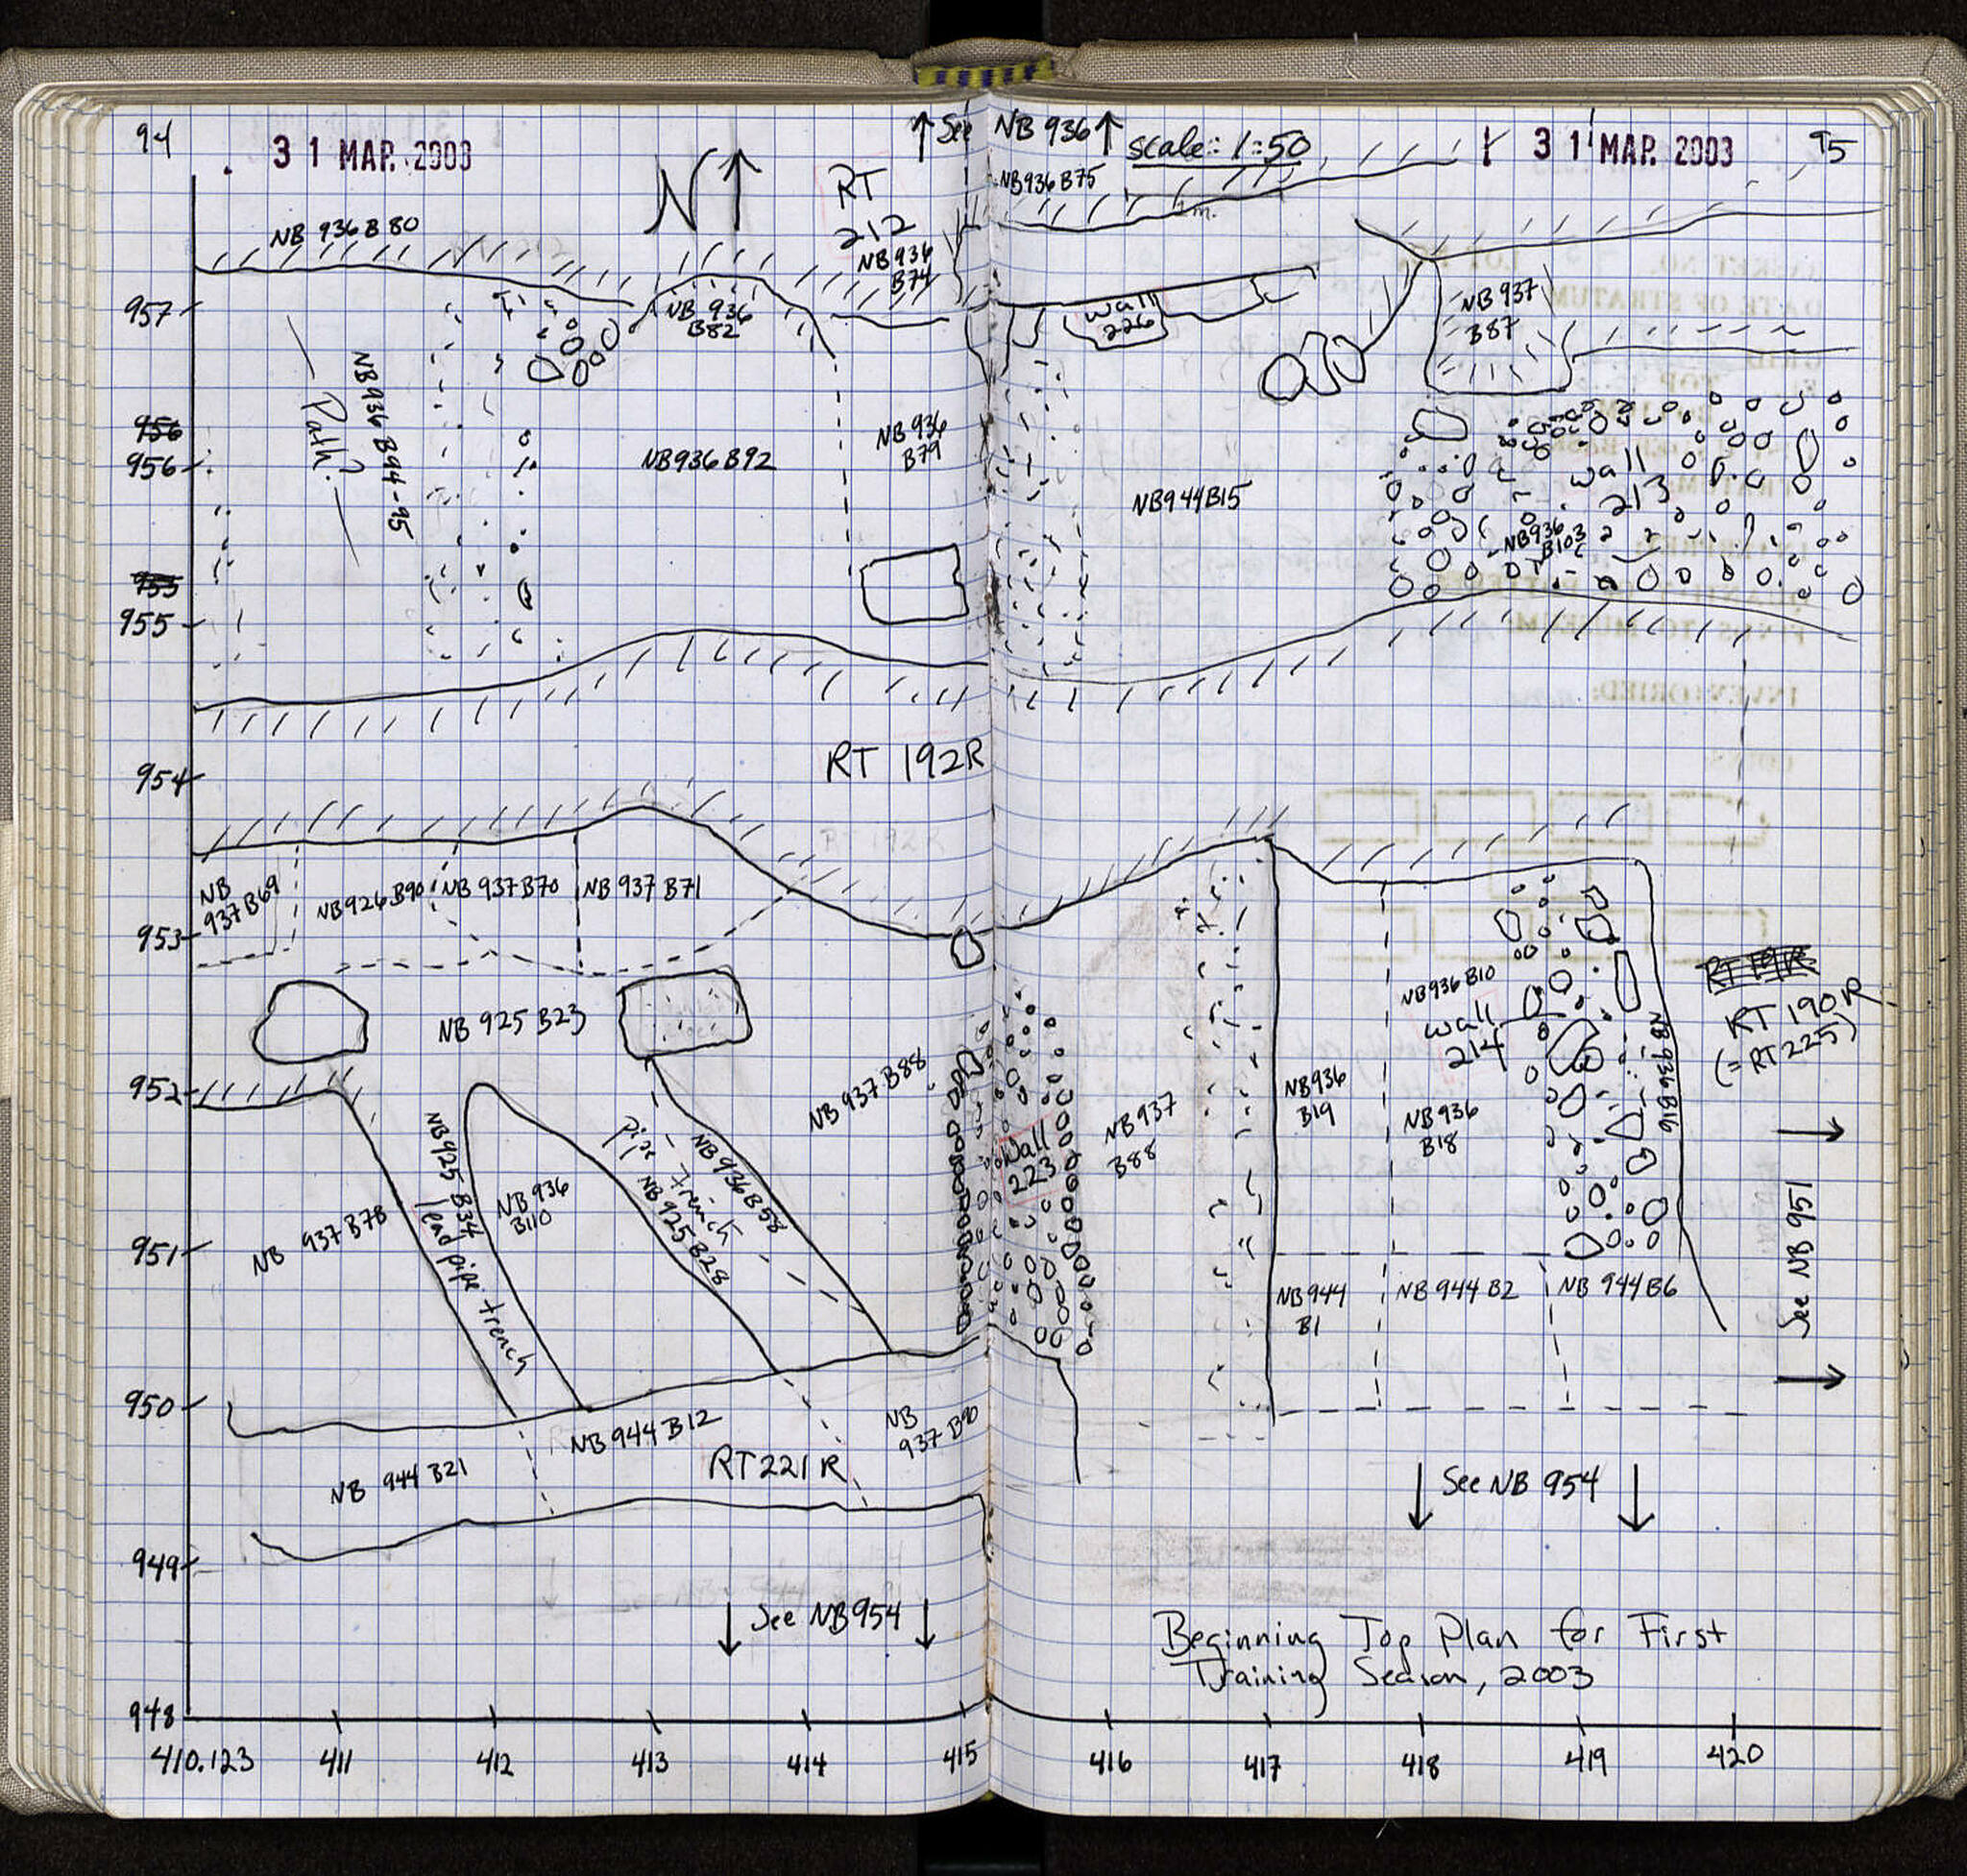 94
31 MAR. 2003
N↑
RT
212
↑ See NB 936 ↑
scale: 1:50
31 MAR. 2003
95
NB 936 B 80
NB 936
B74
NB936 B75
957
NB 936
B82
wall
226
NB 937
B87
Path?
NB936 B94-95
956
956
NB936 B92
NB 936
B79
NB944B15
wall
213
NB936
B103
955
955
954
RT 192R
NB
937 B69
NB 926 B90
NB 937 B70
NB 937 B71
953
NB 925 B23
NB936 B10
wall
214
NB 936 B16
RT 190 R
(= RT 225)
952
NB 937 B88
NB 937
B88
Wall
223
NB936
B19
NB 936
B18
NB 937 B78
NB925 B34
lead pipe trench
NB 936
B110
pipe trench
NB 925 B28
NB936 B58
951
NB 944
B1
NB 944 B2
NB 944 B6
See NB 951
950
NB 944 B12
NB
937 B90
NB 944 B21
RT 221 R
↓ See NB 954 ↓
949
↓ See NB954 ↓
Beginning Top Plan for First
Training Season, 2003
948
410.123 411 412 413 414 415 416 417 418 419 420